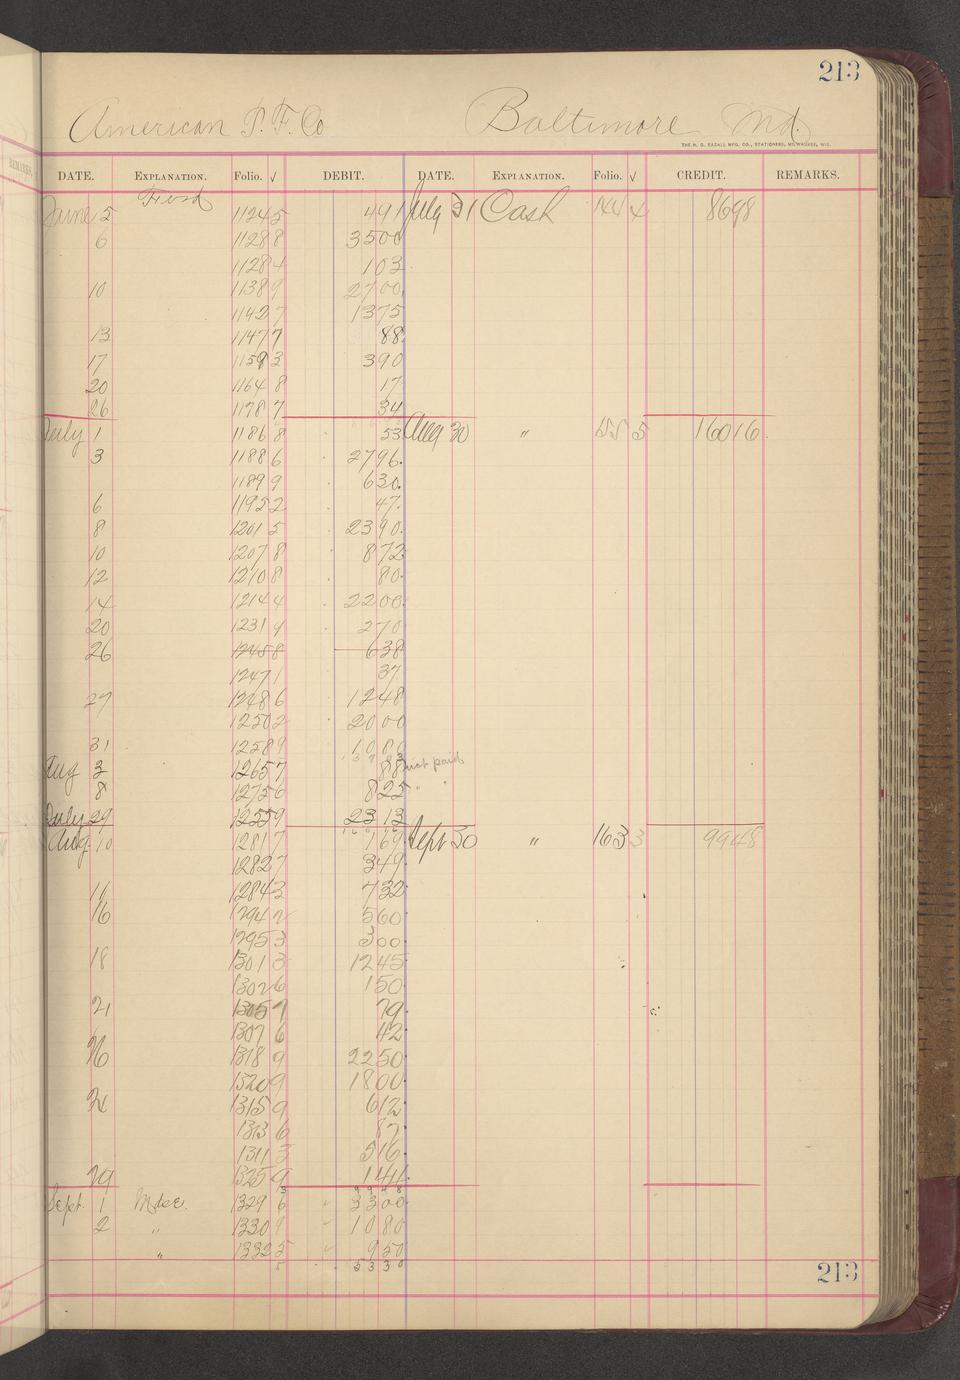 213
American P. F. Co Baltimore Md.
THE H. G. RAZALL MFG. CO., STATIONERS, MILWAUKEE, WIS.
DATE. EXPLANATION. Folio. √ DEBIT. DATE. EXPLANATION. Folio. √ CREDIT. REMARKS.
June 5 11245 491 July 31 Cash 144 4 8698
6 11288 3500
11284 103
10 11389 2700
11427 1375
13 11477 88
17 11593 390
20 11648 17
26 11787 34
July 1 11868 53 Aug 30 " 155 5 16016
3 11886 2796
11899 630
6 11952 47
8 12015 2390
10 12078 872
12 12108 80
14 12144 2200
20 12319 270
26 12458 638
12471 37
27 12486 1248
12502 2000
31 12589 1080
Aug 3 12657 88 not paid
8 12756 825 " "
July 29 12559 2313
Aug. 10 12817 169 Sept 30 " 163 3 9948
12827 349
11 12843 732
16 12942 560
12953 300
18 13013 1245
13026 150
21 13057 79
13076 42
26 13189 2250
13209 1800
24 13159 612
13136 87
13113 516
29 13259 1411
9948
Sept. 1 Mdse. 13296 3300
2 " 13309 1080
" 13325 950
5330
213